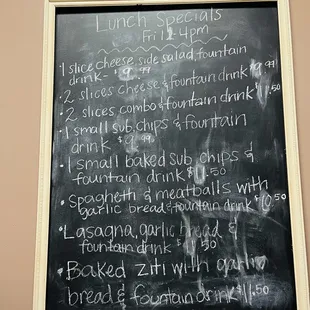 Lunch Specials
Fri 12-4pm
1 slice cheese side salad, fountain
drink- $9.99
• 2 slices cheese & fountain drink $9.99
• 2 slices combo & fountain drink $11.50
• 1 small sub, chips & fountain
drink $9.99
• 1 small baked sub, chips &
fountain drink $11.50
• Spaghetti & meatballs with
garlic bread & fountain drink $10.50
• Lasagna, garlic bread &
fountain drink $11.50
• Baked ziti with garlic
bread & fountain drink $11.50